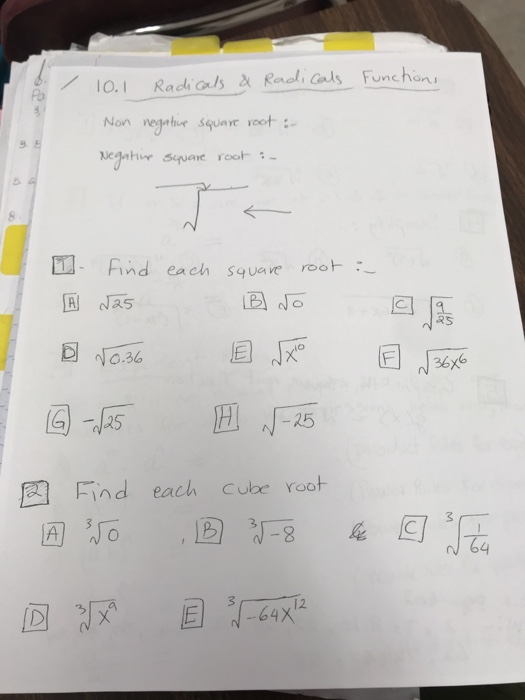 10.1 Radicals & Radicals Functions
Non negative square root :-
Negative square root :-
√ ←
1 - Find each square root :-
A √25 B √0 C √(9/25)
D √0.36 E √x¹⁰ F √36x⁶
G -√25 H √-25
2 Find each cube root
A ³√0 , B ³√-8 C ³√(1/64)
D ³√x⁹ E ³√-64x¹²